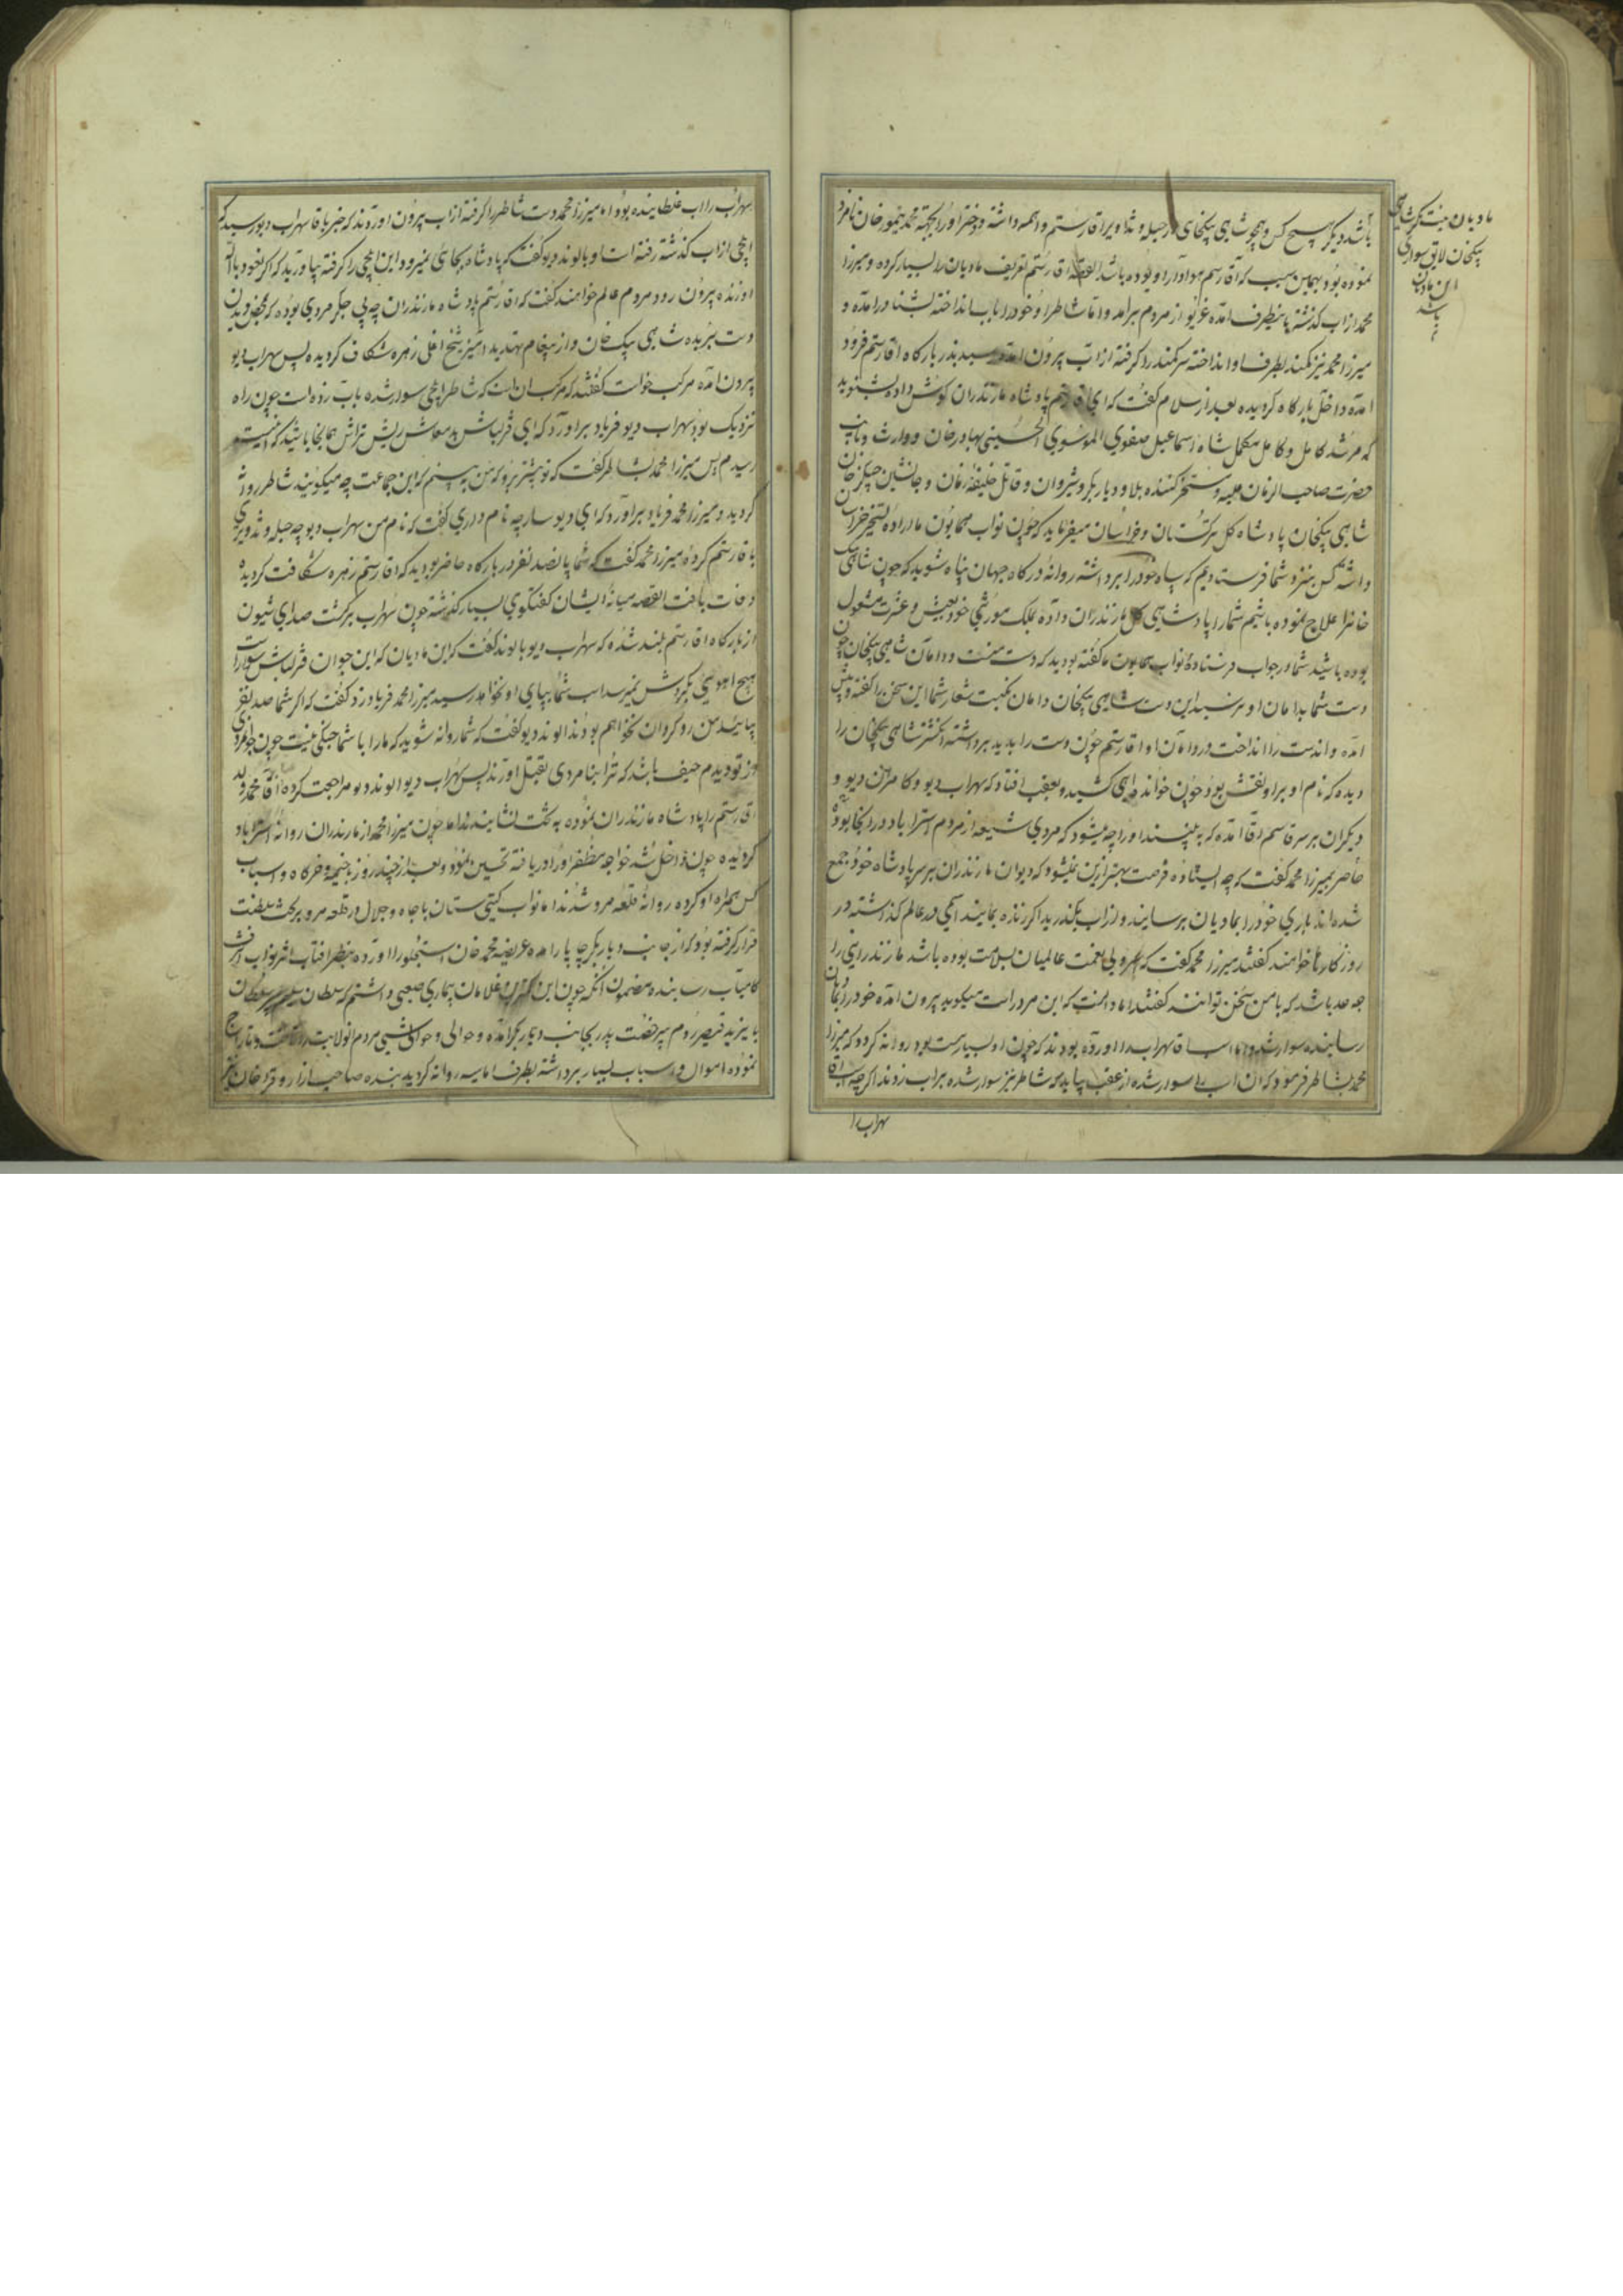 باشد دیگر هیچ کس و هجر شاهی بیکخانی از حیله و شداویر اقا رستم واهمه داشته و دختر او را بجهة محمد تیمور خان نامزد
نموده بود بهمین سبب که آقا رستم هوادار او بوده باشد القصه اقا رستم تعریف مادیان را بسیار کرده و میرزا
محمد از اب کذشته باینطرف امده غریو از مردم برامد و اما شاطر او خود را باب انداخته بشنا درامده و
میرزا محمد نیز کمند بطرف او انداخته سر کمند را کرفته از اب بیرون امده رسید بدر بارکاه اقا رستم فرود
امده داخل بارکاه کردیده بعد از سلام کفت که ای اقا رستم پادشاه مازندران کوش داده بشنوید
که مرشد کامل و کامل مکمل شاه اسماعیل صفوی الموسوی الحسینی بهادرخان و وارث و نایب
حضرت صاحب الزمان علیه و مسخر کننده بلاد دیار بکر و شیروان و قاتل خلیفه زمان و جانشین چنکیز خان
شاهی بیکخان پادشاه کل ترکستان و خراسان میفرماید که چون نواب همایون ما اراده تسخیر خراسان
داشته کس بنزد شما فرستادیم که سپاه خود را برداشته روانه درکاه جهان پناه شوید که چون شاهی بیک
خانرا علاج نموده باشیم شما را پادشاهی کل مازندران داده بملک موروثی خود بعیش و عشرت مشغول
بوده باشید شما در جواب فرستاده نواب همایون ما کفته بودید که دست منست و دامان شاهی بیکخان چون
دست شما بدامان او نرسید این دست شاهی بیکخان دامان نکبت شعار شما این سخن را کفته و پیش
امده و اندست را انداخت در دامان او اقا رستم چون دست را بدید برداشته انکشتر شاهی بیکخان را
دیده که نام او بر او نقش بود چون خوانده اهی کشید و بعقب افتاد که سهراب دیو و کامران دیو و
دیکران بر سر قاسم اقا امده که ببینند او را چه میشود که مردی شیعه از مردم استراباد در انجا بوده
حاضر بمیرزا محمد کفت که چه ایستاده فرصت بهتر ازین نمیشود که دیوان مازندران بر سر پادشاه خود جمع
شده اند باری خود را بمادیان برسانید و از اب بکذرید اکر زنده بمانید اسمی در عالم کذاشته در
روزکارها خواهند کفتند میرزا محمد کفت که سر ولی نعمت عالمیان بسلامت بوده باشد مازندرانی را
چه حد باشد که با من سخن توانند کفتند اما دانست که این مرد راست میکوید بیرون امده خود را بمادیان
رسانیده سوار شد و اما اسب اقا سهراب را اورده بودند که چون او بسیار مست بود روانه کردد که میرزا
محمد بشاطر فرمود که ان اسب را سوار شده از عقب بیاید که شاطر نیز سوار شده بر اب زدند اکر چه اسب اقا
سهراب را
مادیان نیست مکر شاهی
بیکخان لایق سواری
این مادیان
باشد
سهراب را اب غلطانیده بود اما میرزا محمد دست شاطر را کرفته از اب بیرون اوردند که خبر باقا سهراب دیو رسید که
ایلچی از اب کذشته رفته است او بالوند دیو کفت که پادشاه بجائی نمیرود این ایلچی را کرفته بیاورید که اکر نعوذ بالله
او زنده بیرون رود مردم عالم خواهند کفت که اقا رستم پادشاه مازندران چه بی جکر مردی بوده که بمحض دیدن
دست بریده شاهی بیک خان و از پیغام تهدید امیز شیخ اغلی زهره شکاف کردیده پس سهراب دیو
بیرون امده مرکب خواست کفتند که مرکب ان است که شاطر ایلچی سوار شده باب زده است چون راه
نزدیک بود سهراب دیو فریاد براورد که ای قزلباش بد معاش ریش تراش همانجا باشید که اینست
رسیدم پس میرزا محمد بشاطر کفت که تو پیشتر برو که من ببینم که این جماعت چه میکویند شاطر روانه
کردید و میرزا محمد فریاد براورد که ای دیوسار چه نام داری کفت که نام من سهراب دیو چه حیله و تزویری
باقا رستم کرده میرزا محمد کفت که شما پانصد نفر در بارکاه حاضر بودید که اقا رستم زهره شکافت کردیده
وفات یافت القصه میانه ایشان کفتکوی بسیار کذشته چون سهراب برکشت صدای شیون
از بارکاه اقا رستم بلند شده که سهراب دیو بالوند کفت که این مادیان که این جوان قزلباش سوارست
هیچ اهوئی بکردش نمیرسد اسب شما بپای او نخواهد رسید میرزا محمد فریاد زد کفت که اکر شما صد نفر
بیائید من رو کردان نخواهم بود اما الوند دیو کفت که شما روانه شوید که ما را با شما جنکی نیست چون جوانمردی
از تو دیدم حیف باشد که ترا بنامردی بقتل اورند پس سهراب دیو الوند دیو مراجعت کرده اقا محمد ولد
اقا رستم را پادشاه مازندران نموده به تخت نشانیدند اما چون میرزا محمد از مازندران روانه استراباد
کردیده چون داخل شد خواجه مظفر او را دریافته تحسین نمود و بعد از چند روز با خیمه و خرکاه و اسباب
کس همراه او کرده روانه قلعه مرو شدند اما نواب کیتی ستان با جاه و جلال در قلعه مرو بر تخت سلطنت
قرار کرفته بود که از جانب دیار بکر چاپار امده عریضه محمد خان استجلو را اورده بنظر افتاب اثر نواب اشرف
کامیاب رسانیده مضمون انکه چون این کمترین غلامان بیماری صعبی داشتم که سلطان سلیم پسر سلطان
بایزید قیصر روم برخصت پدر بجانب دیار بکر امده و حوالی و حواشی مردم انولایت را تاخت و تاراج
نموده اموال و اسباب بسیار برداشته بطرف اماسیه روانه کردید بنده صاحب ازار و قرا خان نیز